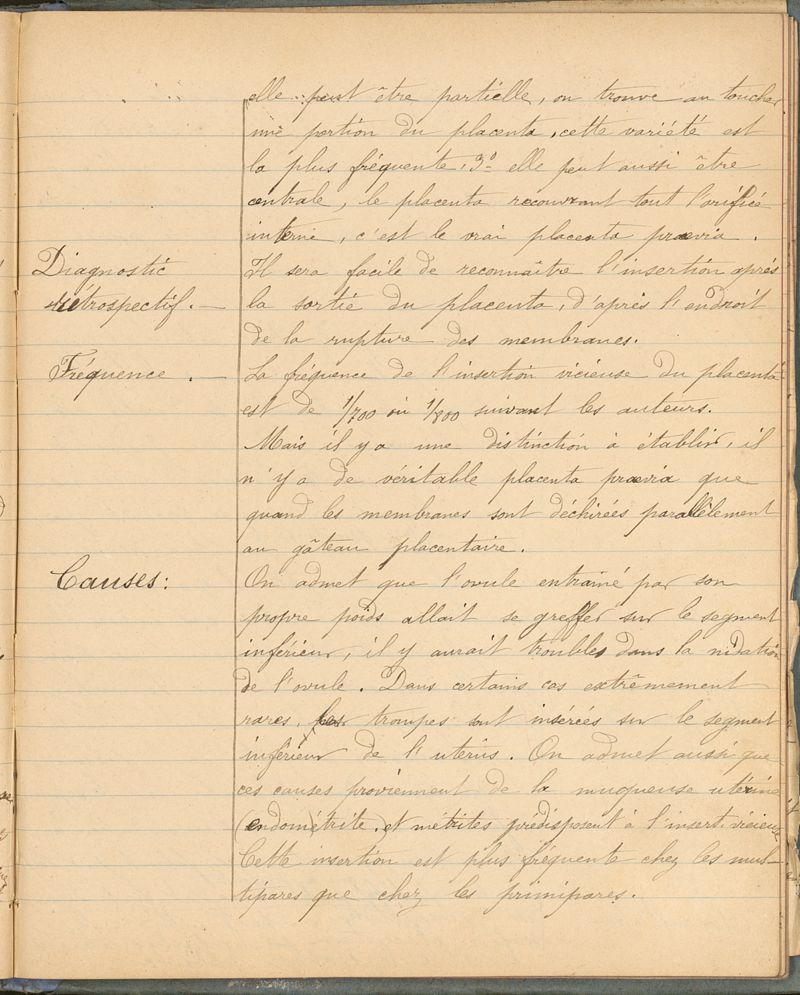 elle peut être partielle, on trouve au toucher
une portion du placenta, cette variété est
la plus fréquente; 3° elle peut aussi être
centrale, le placenta recouvrant tout l'orifice
interne, c'est le vrai placenta prævia.
Diagnostic
rétrospectif. —
Il sera facile de reconnaître l'insertion après
la sortie du placenta, d'après l'endroit
de la rupture des membranes.
Fréquence. —
La fréquence de l'insertion vicieuse du placenta
est de 1/700 ou 1/800 suivant les auteurs.
Mais il y a une distinction à établir, il
n'y a de véritable placenta prævia que
quand les membranes sont déchirées parallèlement
au gâteau placentaire.
Causes:
On admet que l'ovule entraîné par son
propre poids allait se greffer sur le segment
inférieur, il y aurait troubles dans la nidation
de l'ovule. Dans certains cas extrêmement
rares, les trompes sont insérées sur le segment
inférieur de l'uterus. On admet aussi que
ces causes proviennent de la muqueuse utérine
(endométrite) et métrites prédisposent à l'insert. vicieuse
Cette insertion est plus fréquente chez les mul-
tipares que chez les primipares.